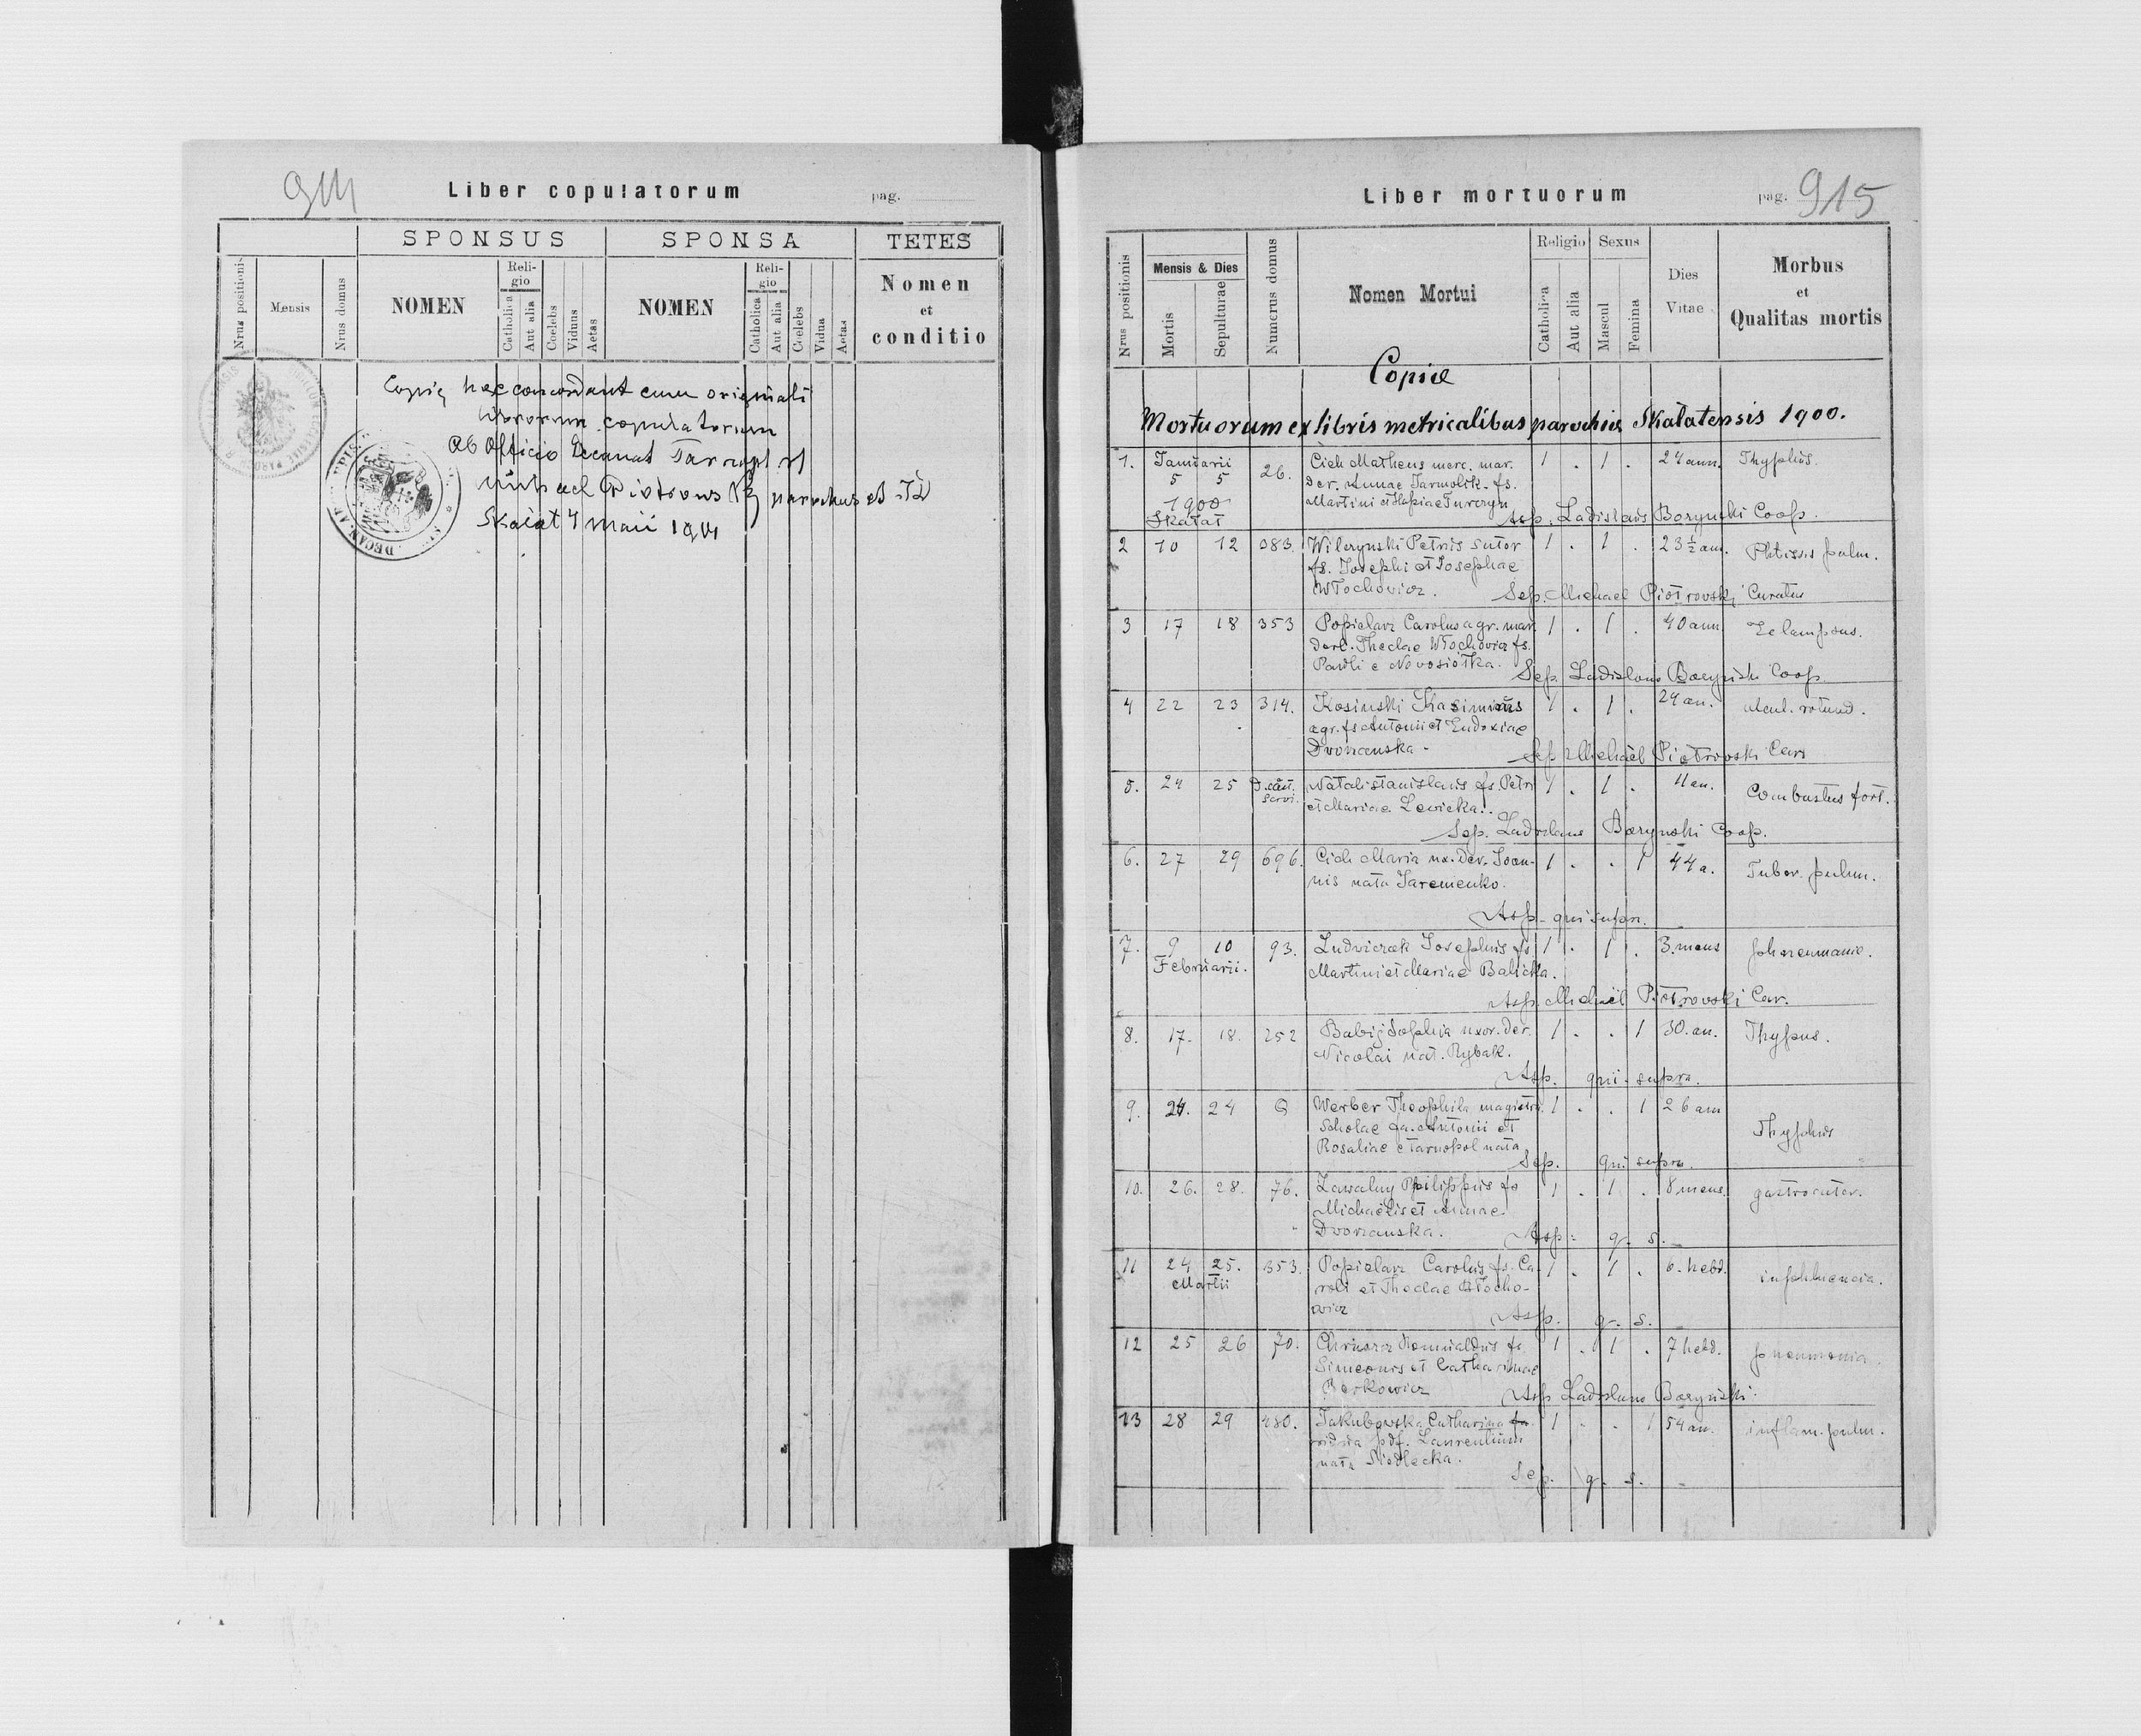 914
Liber copulatorum
pag.
SPONSUS
SPONSA
TETES
Nrus positionis
Mensis
Nrus domus
NOMEN
Reli-
gio
Catholica
Aut alia
Coelebs
Viduus
Aetas
NOMEN
Reli-
gio
Catholica
Aut alia
Coelebs
Vidua
Aetas
Nomen
et
conditio
hae concordant cum originali
librorum copulatorum
Ab Officio Decanat
Michael Piotrowski parochus et
Skalat 4 maii 1901
Liber mortuorum
pag. 915
Nrus positionis
Mensis & Dies
Mortis
Sepulturae
Numerus domus
Nomen Mortui
Religio
Catholica
Aut alia
Sexus
Mascul
Femina
Dies
Vitae
Morbus
et
Qualitas mortis
Copiae
Mortuorum ex libris metricalibus parochiae Skałatensis 1900.
1. Januarii 26. Cich Matheus merc. mar. 1 . 1 . 24 ann. Thyphus.
5 5 der. Annae Jarmolik. fs.
1900 Martini et
Skałat Ladislaus Boryński Coop.
2 10 12 083. Wilczynski Petrus sutor 1 . 1 . 23 ½ an. Phtisis pulm.
fs. Josephi et Josephae
Włochovicz. Sep. Michael Piotrovski Curatus
3 17 18 353 Popielarz Carolus agr. mar. 1 . 1 . 40 ann
derl. Theclae Włochovicz fs.
Pauli e Novosiołka. Sep. Ladislaus Boryński Coop.
4 22 23 314. Kosinski Kasimirus 1 . 1 . 29 an. ulcul. rotund.
agr. fs Antonii et Eudoxiae
Dvorzanska - Sep Michael Piotrovski
5. 24 25 Natali stanislaus fs. Petri 1 . 1 . an. Combustus fort.
et Mariae Levicka. Sep. Ladislaus Boryński Coop.
6. 27 29 696. Cich Maria ux. der. Joan- 1 . . 1 44 a. Tuber. pulm.
nis nata Jaremenko.
Asp. qui supra.
7. 9 10 93. Ludviczak Josephus fs 1 . 1 . 3. mens
Februarii. Martini et Mariae Balicka.
Asp. Michaël Piotrovski
8. 17. 18. 252 Babij Sophia uxor. der. 1 . . 1 30. an. Thypus.
Nicolai nat. Rybak.
Asp. qui supra.
9. 24. 24 Werber Theophila magistra 1 . . 1 26 ann Thyphus
Scholae fa. Antonii et
Rosaliae e Tarnopol nata
Sep. qui supra.
10. 26. 28. 76. Zawalny Philippus fs 1 . 1 . 8 mens. gastroenter.
Michaëlis et Annae
Dvorzanska. Asp. q. s.
11 24 25. 353. Popielarz Carolus fs. Ca- 1 . 1 . 6. hebd. infphluencia.
Martii roli et Theclae Włocho-
wicz Asp. q. s.
12 25 26 70. Romualdus fs. 1 . 1 . 7 hebd. pneumonia
Simeonis et Catharinae
Berkowicz Asp Ladislaus Boryński.
13 28 29 480. Jakubowska Catharina 1 . . 1 54 an. inflam. pulm.
vidua pdf. Laurentium
nata Siedlecka.
Sep. q. s.